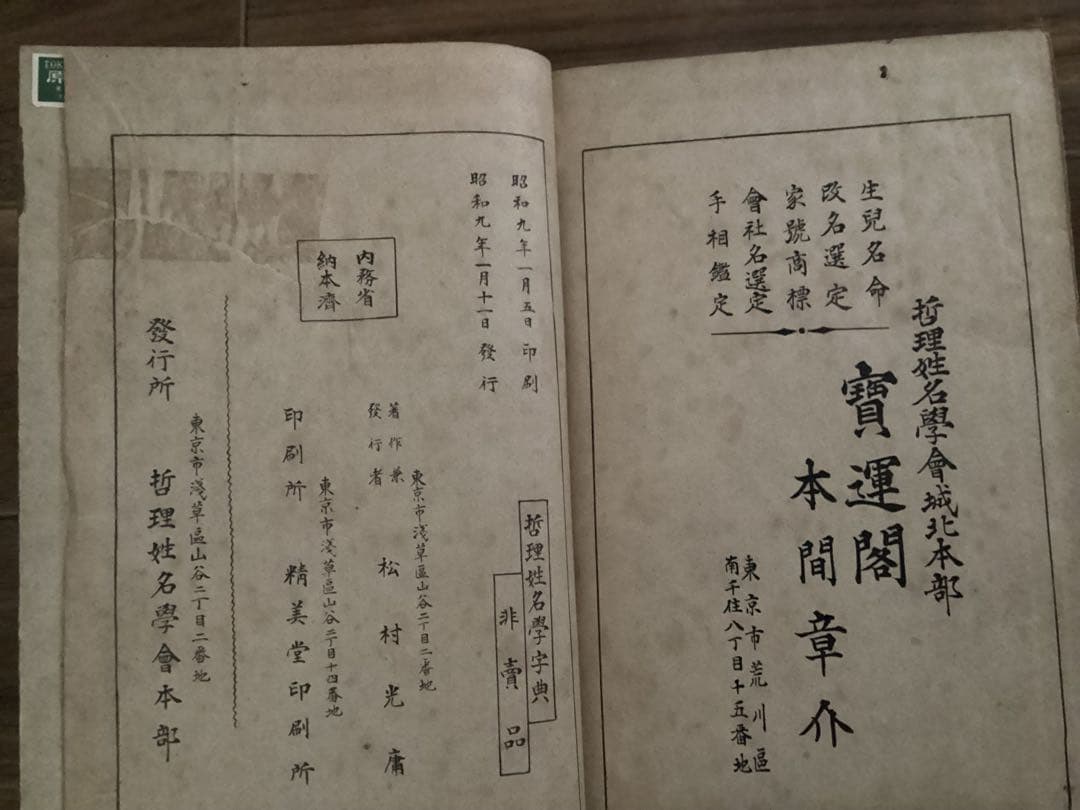 哲理姓名學會城北本部
生兒名命
改名選定
家號商標
會社名選定
手相鑑定
寶運閣
本間章介
東京市荒川區
南千住八丁目十五番地
昭和九年一月五日印刷
昭和九年一月十一日發行
哲理姓名學字典
非賣品
內務省
納本濟
東京市淺草區山谷二丁目二番地
著作兼
發行者
松村光庸
東京市淺草區山谷二丁目十四番地
印刷所
精美堂印刷所
東京市淺草區山谷二丁目二番地
發行所
哲理姓名學會本部